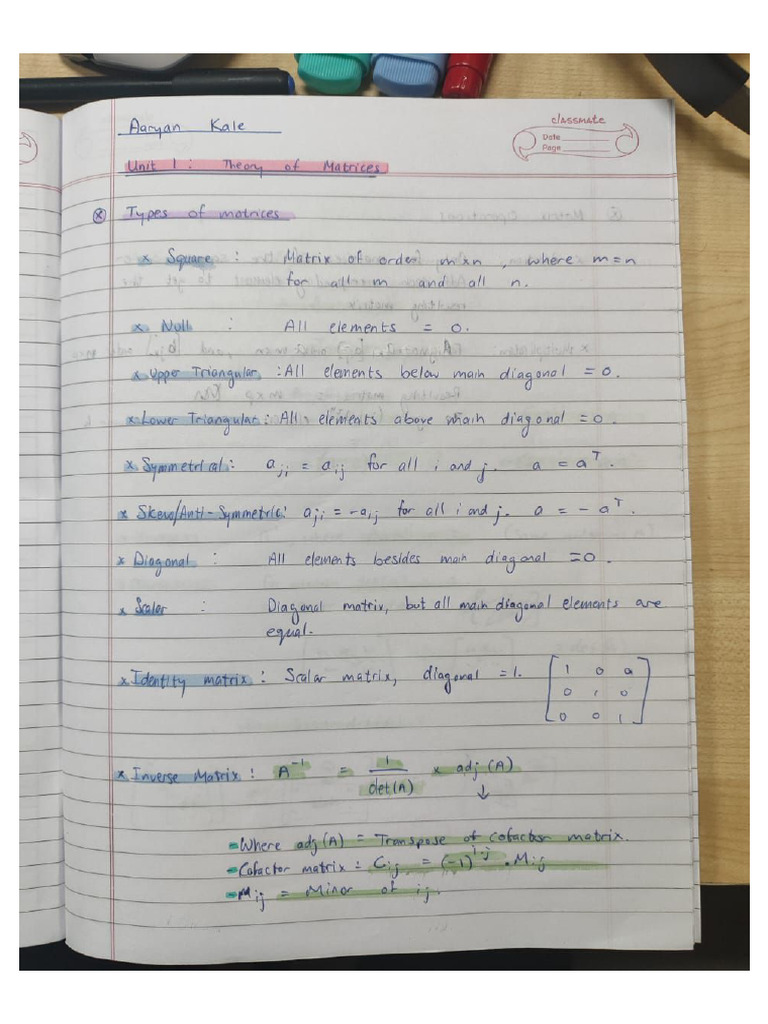 Aaryan Kale
classmate
Date
Page
Unit 1 : Theory of Matrices
Types of matrices
x Square : Matrix of order m×n , where m=n
for all m and all n.
x Null : All elements = 0.
x Upper Triangular : All elements below main diagonal = 0.
x Lower Triangular : All elements above main diagonal = 0.
x Symmetrical : a_ji = a_ij for all i and j. a = a^T.
x Skew/Anti-Symmetric: a_ji = -a_ij for all i and j. a = -a^T.
x Diagonal : All elements besides main diagonal = 0.
x Scalar : Diagonal matrix, but all main diagonal elements are
equal.
x Identity matrix : Scalar matrix, diagonal = 1. [1 0 0
0 1 0
0 0 1]
x Inverse Matrix : A^-1 = 1/det(A) x adj (A)
↓
- Where adj(A) = Transpose of cofactor matrix.
- Cofactor matrix = C_ij = (-1)^i.j . M_ij
- M_ij = Minor of ij.